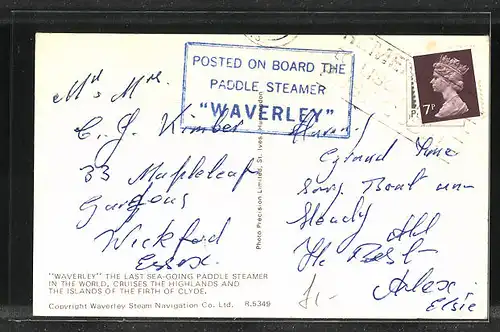 POSTED ON BOARD THE
PADDLE STEAMER
"WAVERLEY"
7P
Mr & Mrs.
C. J. Kimber
33 Mapleleaf
Gardens
Wickford
Essex.
Having
Grand Time
Sorry Boat un-
Steady
All
The Best
Alex
Elsie
Photo Precision Limited, St. Ives, Huntingdon
"WAVERLEY" THE LAST SEA-GOING PADDLE STEAMER
IN THE WORLD, CRUISES THE HIGHLANDS AND
THE ISLANDS OF THE FIRTH OF CLYDE.
Copyright Waverley Steam Navigation Co. Ltd. R.5349